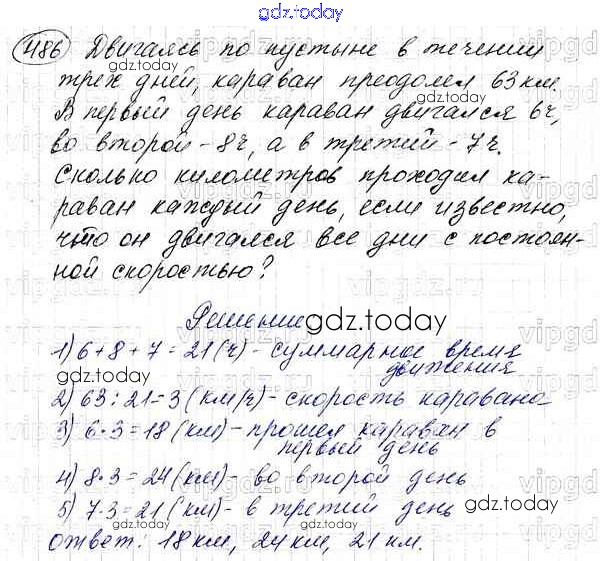 gdz.today
486 Двигаясь по пустыне в течении
трех дней, караван преодолел 63 км.
В первый день караван двигался 6ч,
во второй - 8ч, а в третий - 7ч.
Сколько километров проходил ка-
раван каждый день, если известно,
что он двигался все дни с постоян-
ной скоростью?
Решение
gdz.today
1) 6+8+7=21(ч) - суммарное время
движения
gdz.today
2) 63:21=3(км/ч) - скорость каравана
3) 6·3=18(км) - прошел караван в
первый день
gdz.today
4) 8·3=24(км) - во второй день
gdz.today
5) 7·3=21(км) - в третий день
gdz.today
gdz.today
ответ: 18км, 24км, 21км.